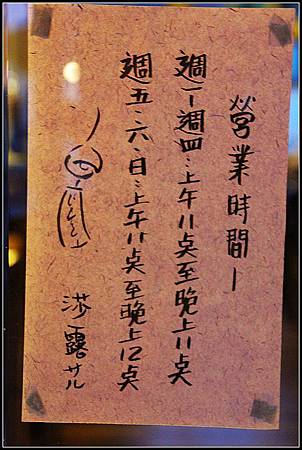 營業時間—
週一~週四：上午11点至晚上11点
週五、六、日：上午11点至晚上12点
莎露サル